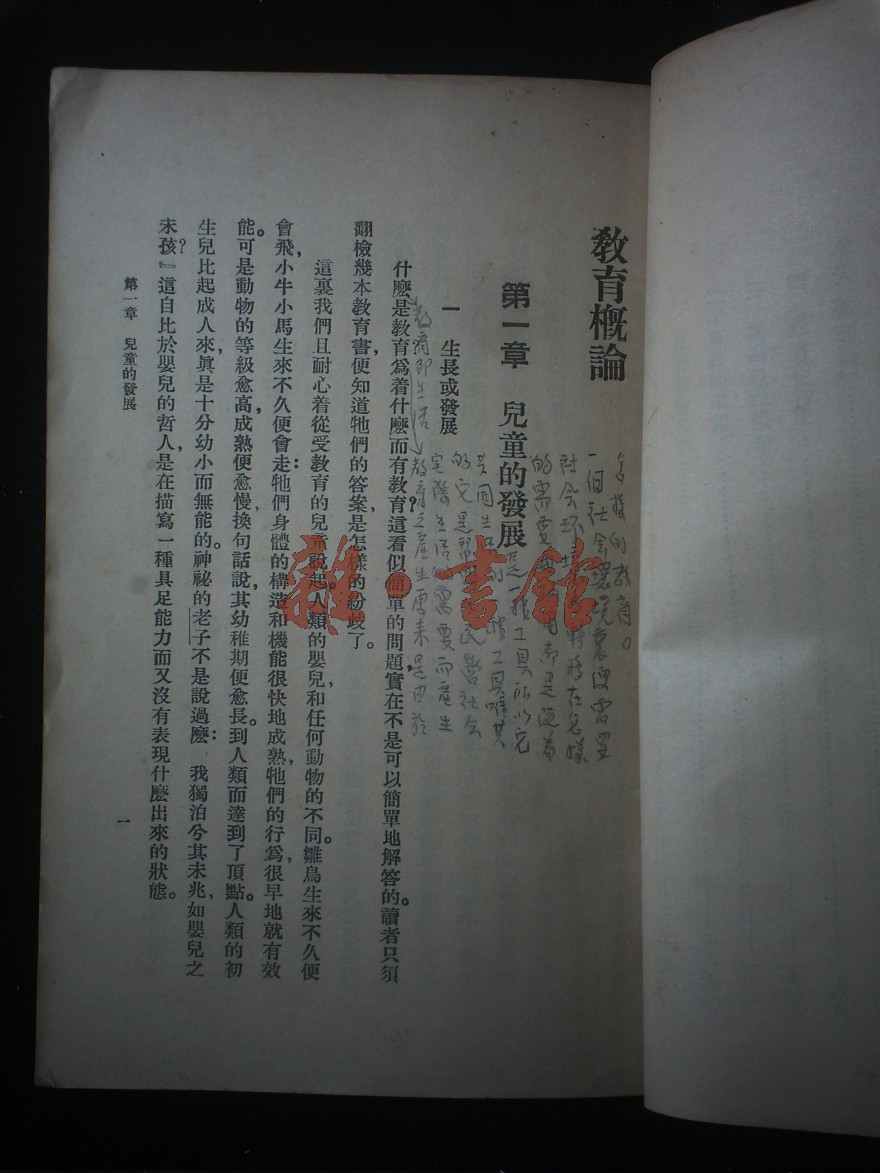 教育概論
第一章 兒童的發展
一 生長或發展
什麼是教育?爲着什麼而有教育?這看似簡單的問題,實在不是可以簡單地解答的。讀者只須
翻檢幾本教育書,便知道牠們的答案是怎樣的紛歧了。
這裏我們且耐心着從受教育的兒童說起。人類的嬰兒和任何動物的不同。雛鳥生來不久便
會飛,小牛小馬生來不久便會走:牠們身體的構造和機能很快地成熟,牠們的行爲,很早地就有效
能。可是動物的等級愈高,成熟便愈慢,換句話說,其幼稚期便愈長。到人類而達到了頂點。人類的初
生兒比起成人來,眞是十分幼小而無能的。神祕的老子不是說過麼:我獨泊兮其未兆,如嬰兒之
未孩?』這自比於嬰兒的哲人,是在描寫一種具足能力而又沒有表現什麼出來的狀態。
第一章 兒童的發展
一
怎樣的教育。
一個社會環境裏便需要
的需要
是一種工具所以它
共同生活 工具唯其
的它是幫 民營社會
實際生活的需要而產生
教育之產生原來是由於
教育即生活
雜·書館